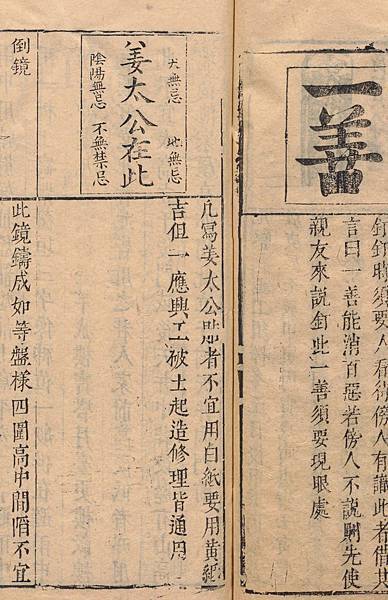 一善
釘釘時須要人看待傍人有識此者借其
言曰一善能消百惡若傍人不說則先使
親友來說釘此一善須要現眼處
天無忌 地無忌
姜太公在此
陰陽無忌 不無禁忌
凡寫姜太公貼者不宜用白紙要用黃紙
吉但一應興工破土起造修理皆通用
倒鏡
此鏡鑄成如等盤樣四圍高中間陷不宜